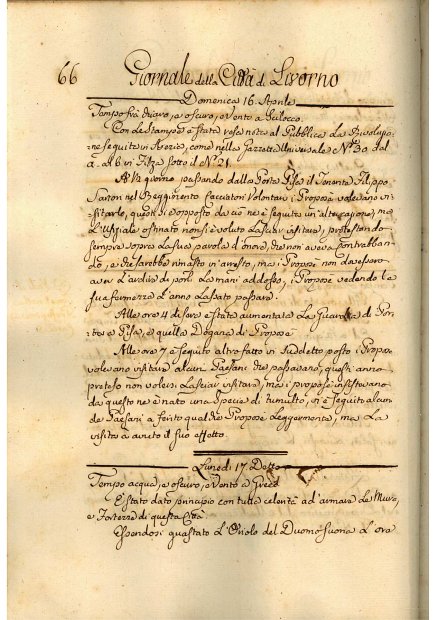 66 Giornale della Città di Livorno
Domenica 16. Aprile
Tempo frà chiaro, e oscuro, e Vento a Scilocco.
Con le Stampe è stata resa nota al Pubblico la Rivoluzio-
ne seguita in , come nella Gazzetta Universale N.º 30 dal
a. al 6 in Filza sotto il N.º 21
A ½ giorno passando dalla Porta Pisa il Tenente Filippo
Sartori nel Reggimento Cacciatori Volontari i Propose volevano vi-
sitarlo, questi si è opposto da ciò ne è seguito un'altercazione, ma
L'Uffiziale ostinato non si è voluto Lasciar visitare, protestando
sempre sopra La sua parola d'onore, che non aveva contrabban-
do, e che sarebbe rimasto in arresto, ma i Proposi non dovessero
aver L'ardire di porli La mani addosso, i Proposi vedendo La
sua fermezza L'anno Lasciato passare.
Alle ore 4 di sera è stata aumentata La Guardia di Por-
ta a Pisa, e quella Dogana di Propose
Alle ore 7 è seguito altro fatto in suddetto posto i Propose
volevano visitare alcuni Paesani che passavano, questi anno
preteso non volersi Lasciar visitare, ma i propose insistevano
da questo ne è nato una specie di tumulto, vi è seguito alcun
de Paesani a ferito qualche Propose Leggermente, ma La
visita à avuto il suo effetto.
Lunedi 17. Detto
Tempo acqua, e oscuro, e Vento a Greco
È stato dato principio con tutta celerità ad'armare Le Mura,
e Fortezze di questa Città.
Essendosi guastato L'Oriolo del Duomo suona L'ora